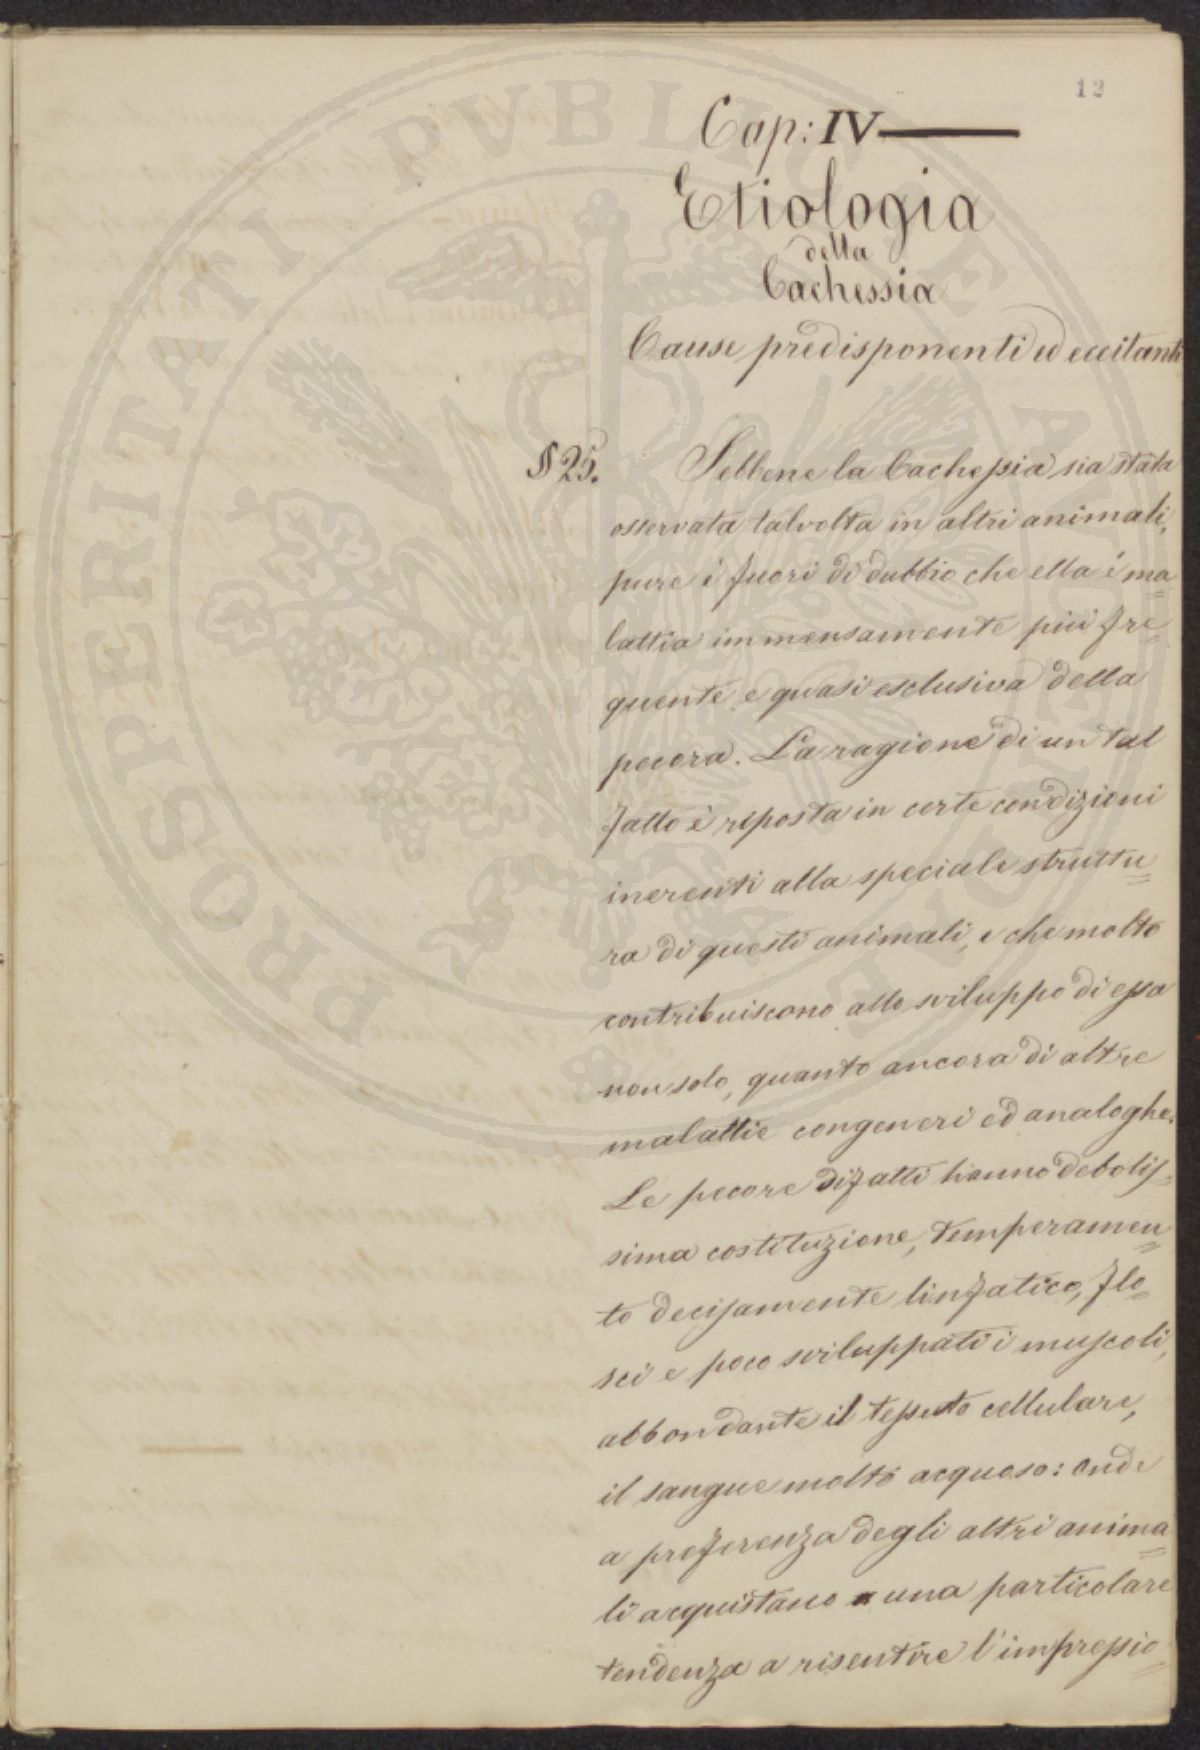 12
Cap: IV
Etiologia
della
Cachessia
Cause predisponenti ed eccitanti
§ 25. Sebbene la Cachessia sia stata
osservata talvolta in altri animali,
pure è fuori di dubbio che ella è ma=
lattia immensamente più fre=
quente e quasi esclusiva della
pecora. La ragione di un tal
fatto è riposta in certe condizioni
inerenti alla speciale struttu=
ra di questi animali, e che molto
contribuiscono allo sviluppo di essa
non solo, quanto ancora di altre
malattie congeneri ed analoghe.
Le pecore difatti hanno debolis=
sima costituzione, temperamen=
to decisamente linfatico, flo=
sci e poco sviluppati i muscoli,
abbondante il tessuto cellulare,
il sangue molto acquoso: onde
a preferenza degli altri anima=
li acquistano una particolare
tendenza a risentire l'impressio=
PROSPERITATI PUBLICAE AUGENDAE